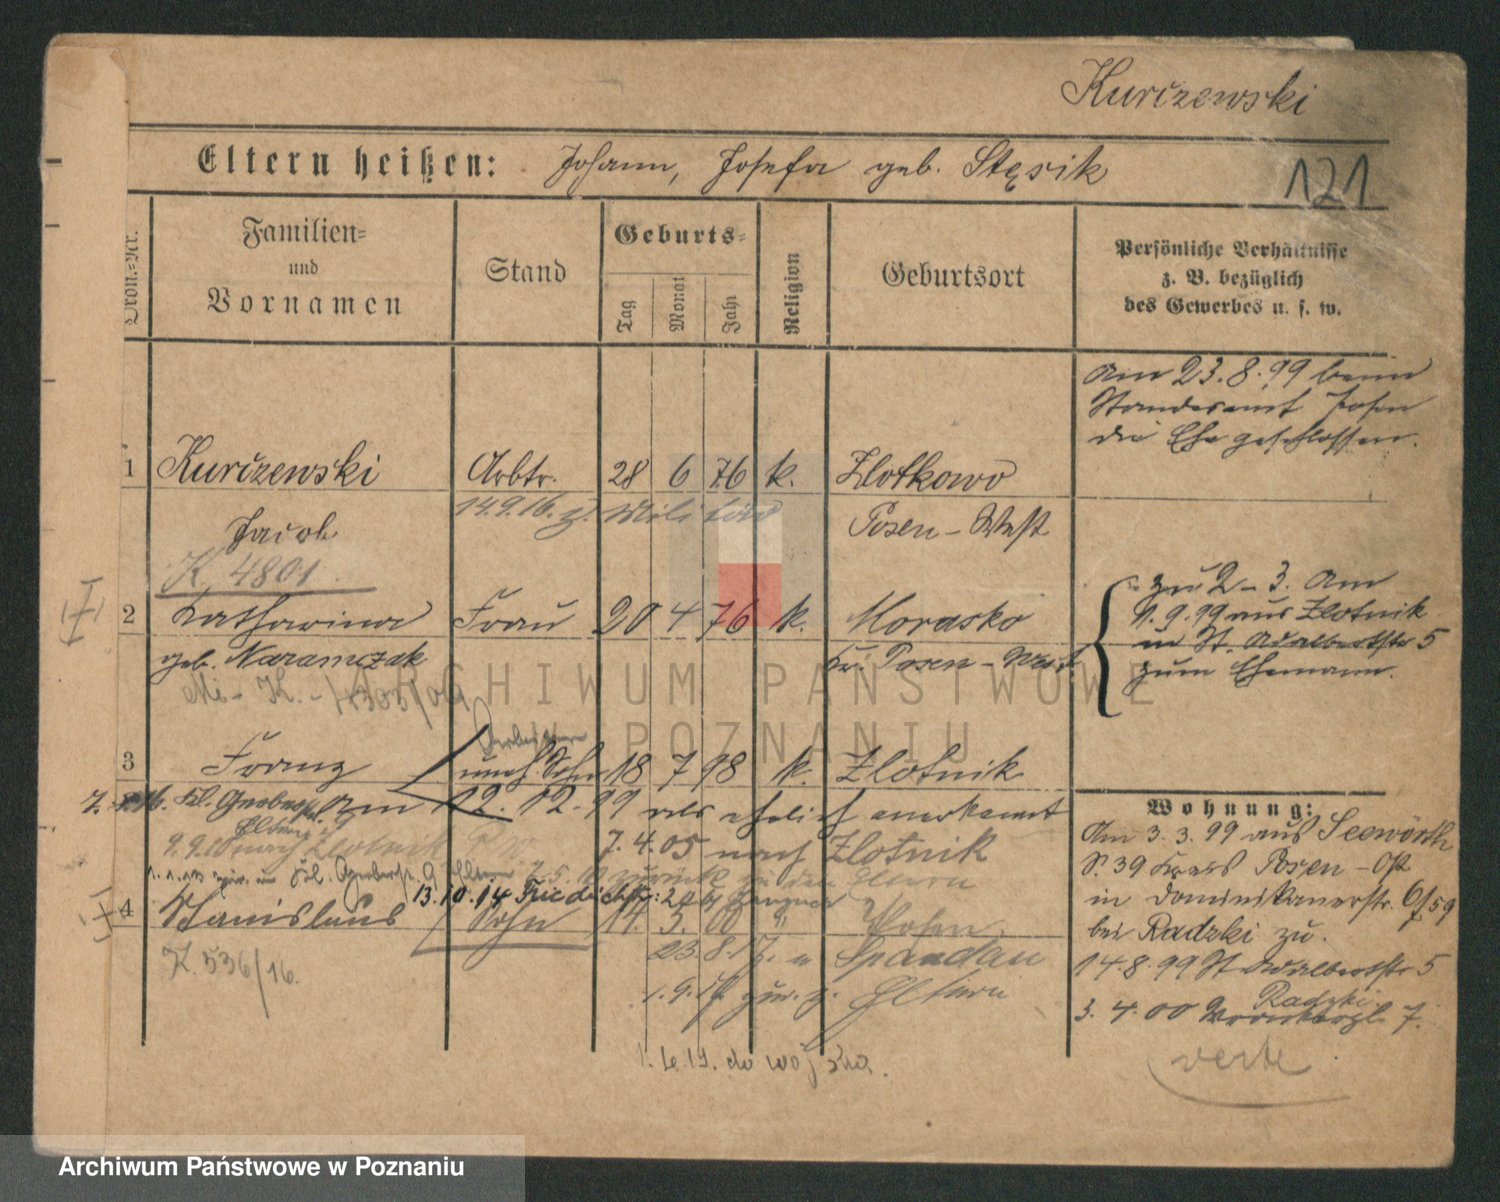 Kurczewski
Eltern heißen: Johann, Josefa geb. Stęsik
121
Ordn.-Nr.
Familien- und Vornamen
Stand
Geburts-
Tag Monat Jahr
Religion
Geburtsort
Persönliche Verhältnisse
z. B. bezüglich
des Gewerbes u. s. w.
Am 23.8.99 beim
Standesamt Posen
die Ehe geschlossen.
1 Kurczewski Arbtr. 28 6 76 k. Zlotkowo
14.9.16. z. Militär
Jacob Posen-West
K. 4801
I
2 Katharina Frau 20 4 76 k. Morasko
geb. Naramczak Kr. Posen-West
zu 2-3. Am
1.9.99 aus Zlotnik
in St. Adalbertstr 5
zum Ehemann.
3 Franz unehl. Sohn 18 7 98 k. Zlotnik
am 12.12.99 als ehelich anerkannt
9.9.10 nach Zlotnik
7.4.05 nach Zlotnik
zurück zu den Eltern
13.10.14
4 Stanislaus Sohn 14. 5. 00 " Posen
K. 536/16.
23.8.17. n Spandau
1.9.17 zur. z. Eltern
do wojska.
Wohnung:
Am 3.3.99 aus Seewörth
No. 39 Kreis Posen-Ost
in Dominikanerstr.
bei Radzki zu.
14.8.99 St Adalbertstr 5
Radzki
3.4.00 7.
verte
ARCHIWUM PAŃSTWOWE
W POZNANIU
Archiwum Państwowe w Poznaniu